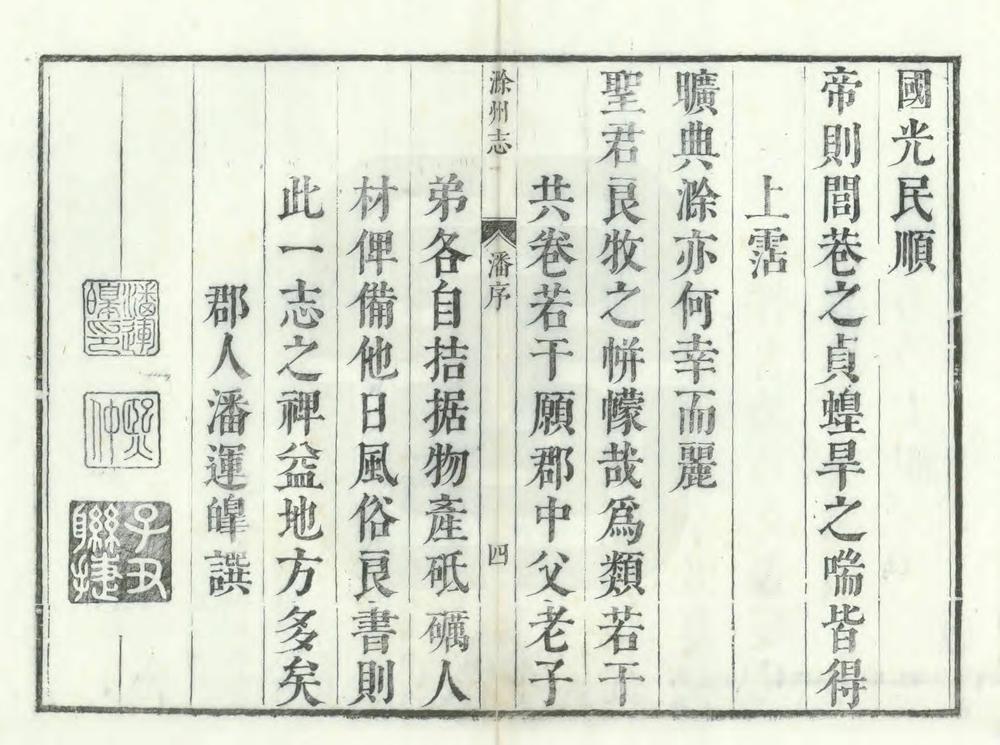 國光民順
帝則閭巷之貞蝗旱之喘皆得
上霑
曠典滁亦何幸而麗
聖君良牧之帡幪哉爲類若干
共卷若干願郡中父老子
滁州志
潘序
四
弟各自拮据物產砥礪人
材俾備他日風俗良書則
此一志之裨益地方多矣
郡人潘運皥譔
潘運皥印
子丑聯捷